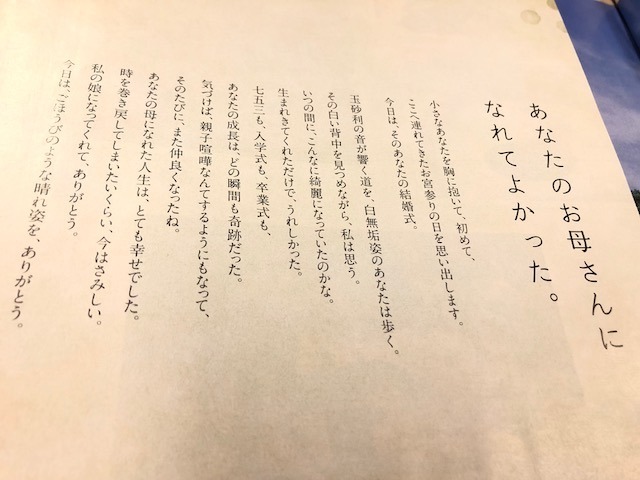 あなたのお母さんに
なれてよかった。
小さなあなたを胸に抱いて、初めて、
ここへ連れてきたお宮参りの日を思い出します。
今日は、そのあなたの結婚式。
玉砂利の音が響く道を、白無垢姿のあなたは歩く。
その白い背中を見つめながら、私は思う。
いつの間に、こんなに綺麗になっていたのかな。
生まれきてくれただけで、うれしかった。
七五三も、入学式も、卒業式も、
あなたの成長は、どの瞬間も奇跡だった。
気づけば、親子喧嘩なんてするようにもなって、
そのたびに、また仲良くなったね。
あなたの母になれた人生は、とても幸せでした。
時を巻き戻してしまいたいくらい、今はさみしい。
私の娘になってくれて、ありがとう。
今日は、ごほうびのような晴れ姿を、ありがとう。